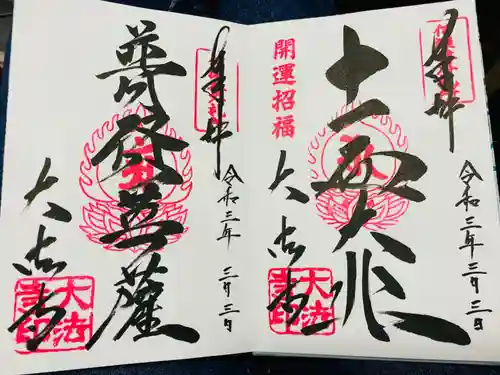 奉拝
令和三年三月三日
十一面大悲
開運招福
大法寺
大法寺印
奉拝
令和三年三月三日
普賢菩薩
大法寺
大法寺印